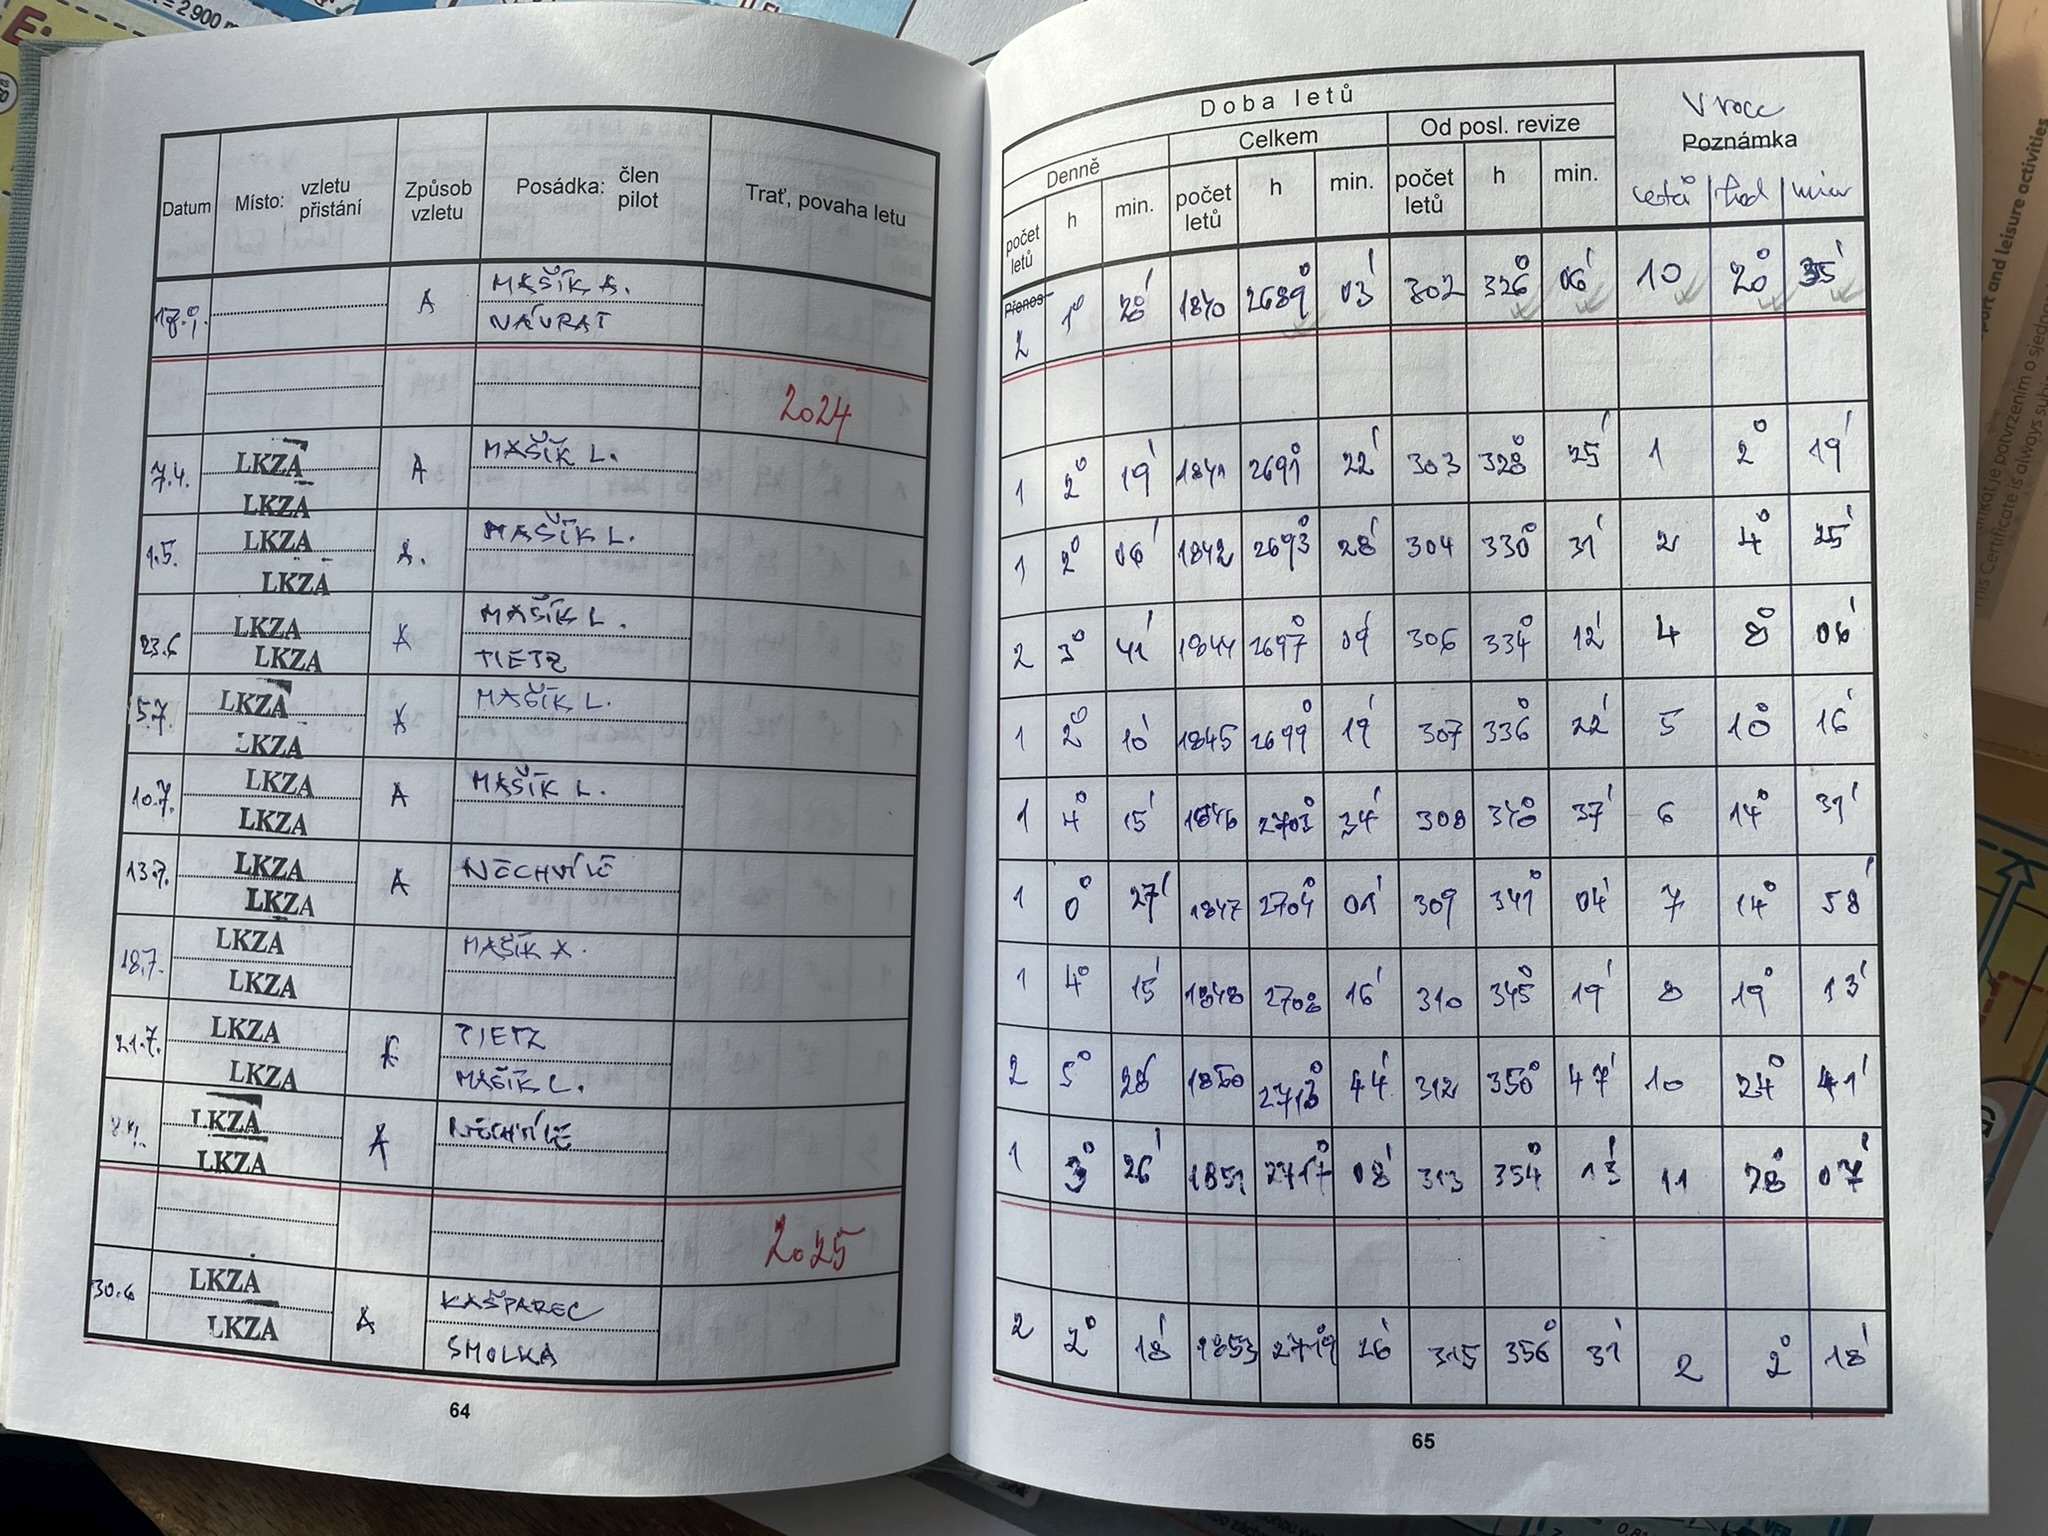 Datum Místo: vzletu přistání Způsob vzletu Posádka: člen pilot Trať, povaha letu
A MAŠÍK A.
NÁVRAT
2024
7.4. LKZA A MAŠÍK L.
LKZA
1.5. LKZA A. MAŠÍK L.
LKZA
23.6 LKZA A MAŠÍK L.
LKZA TIETZ
5.7. LKZA A MAŠÍK L.
LKZA
10.7. LKZA A MAŠÍK L.
LKZA
13.7. LKZA A NECHVÍLE
LKZA
18.7. LKZA MAŠÍK A.
LKZA
21.7. LKZA TIETZ
LKZA MAŠÍK L.
LKZA A NECHVÍLE
LKZA
2025
30.6 LKZA A KAŠPAREC
LKZA SMOLKA
64
Doba letů
V roce
Celkem Od posl. revize Poznámka
Denně
počet letů h min. počet letů h min. počet letů h min. letů hod min
Přenos
2 1° 20' 1840 2689° 03' 302 326° 06' 10 20° 35'
1 2° 19' 1841 2691° 22' 303 328° 25' 1 2° 19'
1 2° 06' 1842 2693° 28' 304 330° 31' 2 4° 25'
2 3° 41' 1844 2697° 09' 306 334° 12' 4 8° 06'
1 2° 10' 1845 2699° 19' 307 336° 22' 5 10° 16'
1 4° 15' 1846 2703° 34' 308 340° 37' 6 14° 31'
1 0° 27' 1847 2704° 01' 309 341° 04' 7 14° 58'
1 4° 15' 1848 2708° 16' 310 345° 19' 8 19° 13'
2 5° 28' 1850 2713° 44' 312 350° 47' 10 24° 41'
1 3° 26' 1851 2717° 08' 313 354° 13' 11 28° 07'
2 2° 18' 1853 2719° 26' 315 356° 31' 2 2° 18'
65
= 2 900 m
port and leisure activities
This Certificate is always